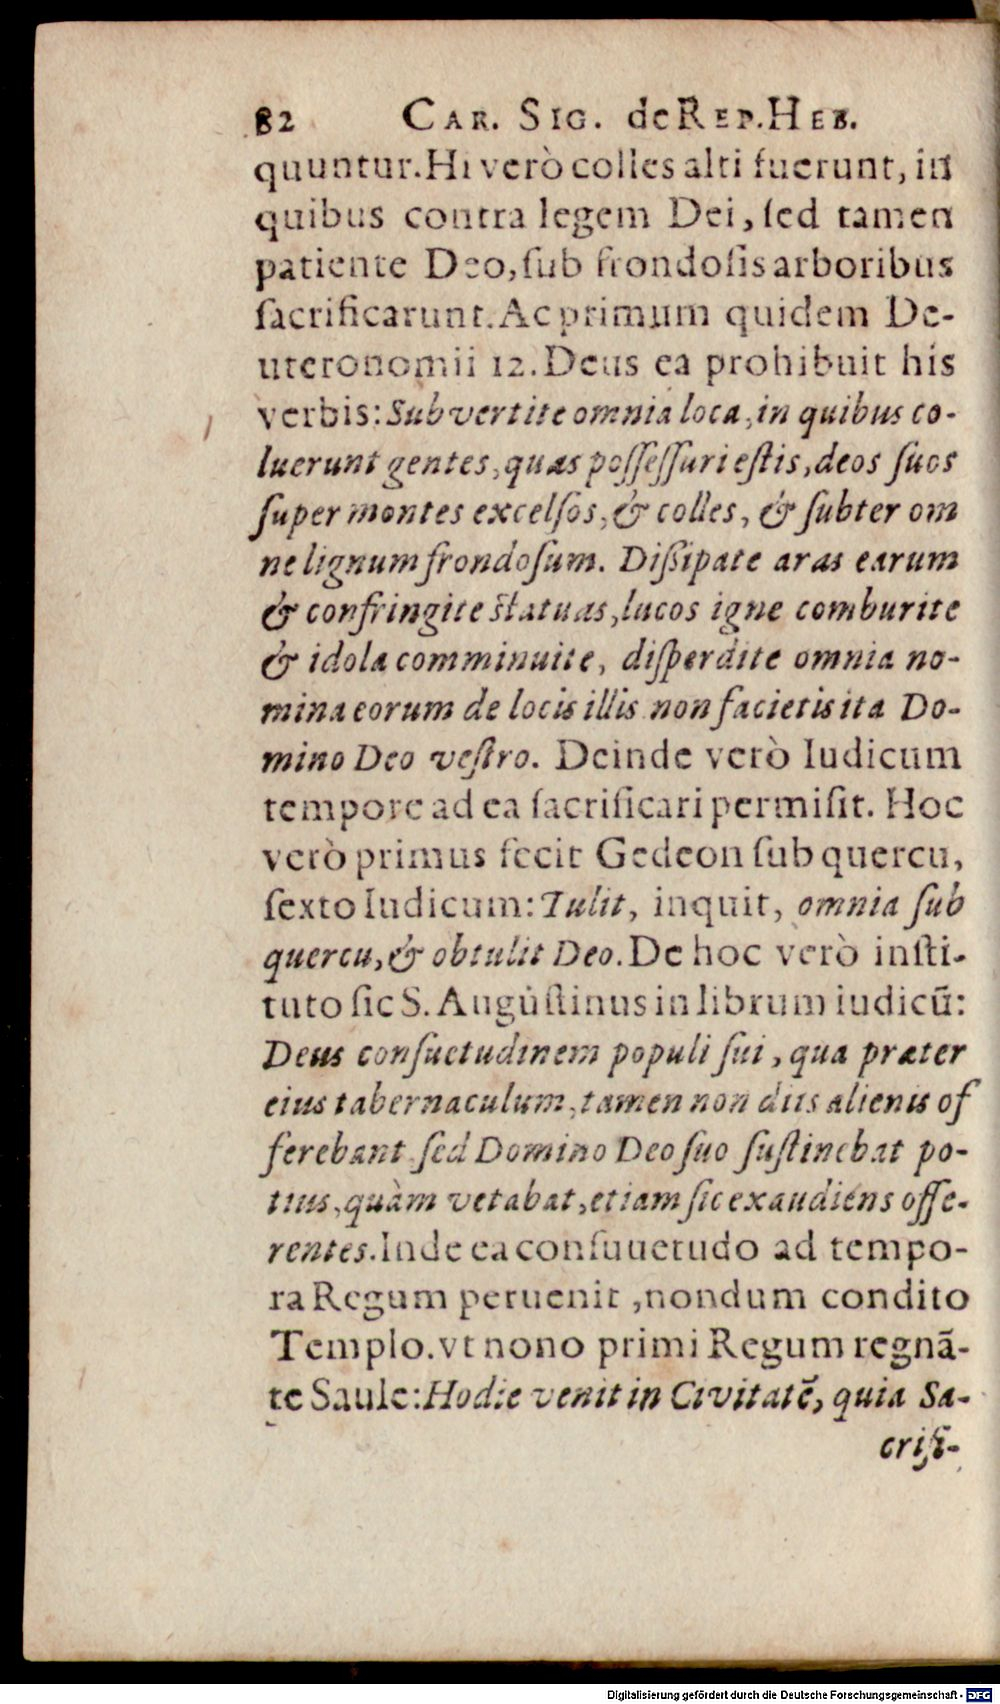 82 CAR. SIG. de REP. HEB.
quuntur. Hi verò colles alti fuerunt, in
quibus contra legem Dei, ſed tamen
patiente Deo, ſub frondoſis arboribus
ſacrificarunt. Ac primum quidem De-
uteronomii 12. Deus ea prohibuit his
verbis: Subvertite omnia loca, in quibus co-
luerunt gentes, quas poſſeſſuri eſtis, deos ſuos
ſuper montes excelſos, & colles, & ſubter om
ne lignum frondoſum. Diſſipate aras earum
& confringite ſtatuas, lucos igne comburite
& idola comminuite, diſperdite omnia no-
mina eorum de locis illis non facietis ita Do-
mino Deo veſtro. Deinde verò Iudicum
tempore ad ea ſacrificari permiſit. Hoc
verò primus fecit Gedeon ſub quercu,
ſexto Iudicum: Tulit, inquit, omnia ſub
quercu, & obtulit Deo. De hoc verò inſti-
tuto ſic S. Auguſtinus in librum iudicū:
Deus conſuetudinem populi ſui, qua præter
eius tabernaculum, tamen non diis alienis of
ferebant ſed Domino Deo ſuo ſuſtinebat po-
tius, quàm vetabat, etiam ſic exaudiens offe-
rentes. Inde ea conſuuetudo ad tempo-
ra Regum peruenit, nondum condito
Templo. vt nono primi Regum regnā-
te Saule: Hodie venit in Civitatē, quia Sa-
crifi-
Digitalisierung gefördert durch die Deutsche Forschungsgemeinschaft - DFG